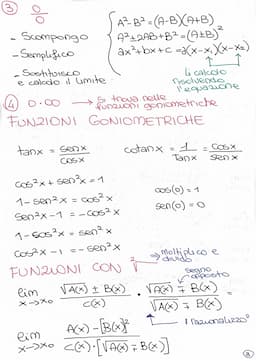 ③ 0/0
- Scompongo
- Semplifico
- Sostituisco e calcolo il limite
A²-B² = (A-B)(A+B)
A²±2AB+B² = (A±B)²
ax²+bx+c = a(x-x₁)(x-x₂)
↳ calcolo risolvendo l'equazione
④ 0·∞ → si trova nelle funzioni goniometriche
FUNZIONI GONIOMETRICHE
tanx = senx/cosx cotanx = 1/Tanx = cosx/senx
cos²x + sen²x = 1
1 - sen²x = cos²x
sen²x - 1 = -cos²x
1 - cos²x = sen²x
cos²x - 1 = -sen²x
cos(0) = 1
sen(0) = 0
FUNZIONI CON √ → moltiplico e divido
segno opposto
lim x→x₀ √A(x) ± B(x) / C(x) · √A(x) ∓ B(x) / √A(x) ∓ B(x)
↑ "razionalizzo"
lim x→x₀ A(x) - [B(x)]² / C(x)·[√A(x) ∓ B(x)]